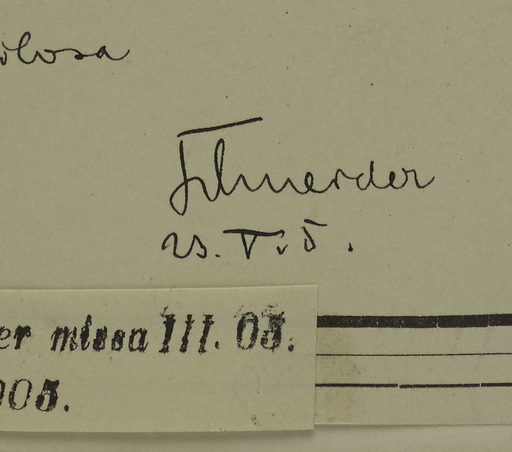 olosa
Schneider
23. V. 5.
er missa III. 05.
905.